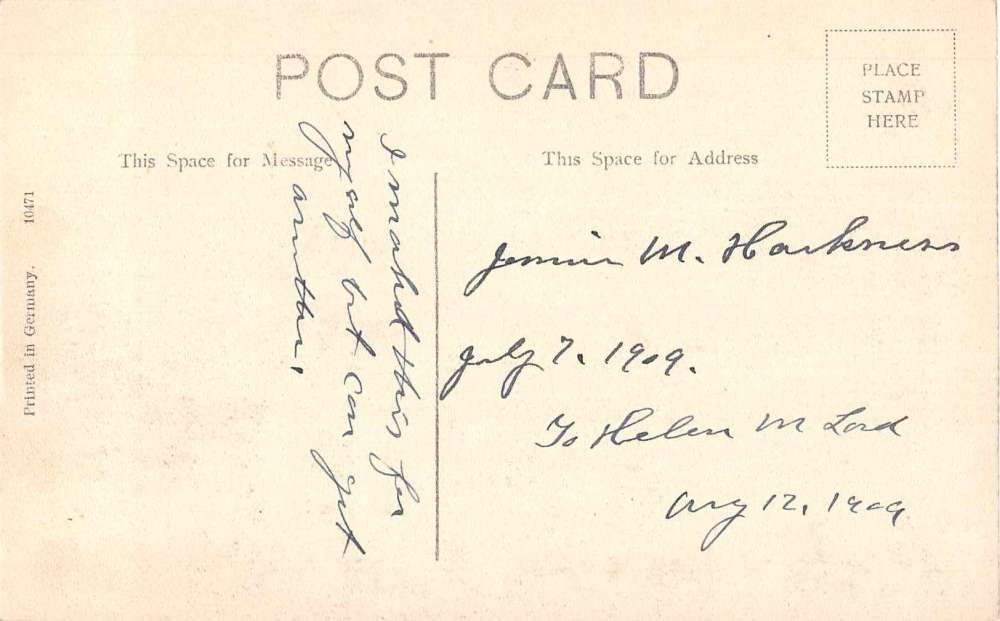 POST CARD
PLACE
STAMP
HERE
This Space for Message
This Space for Address
Printed in Germany.
10471
I marked this for
myself but can get
another.
Jennie M. Harkness
July 7. 1909.
To Helen M Lord
Aug 12, 1909